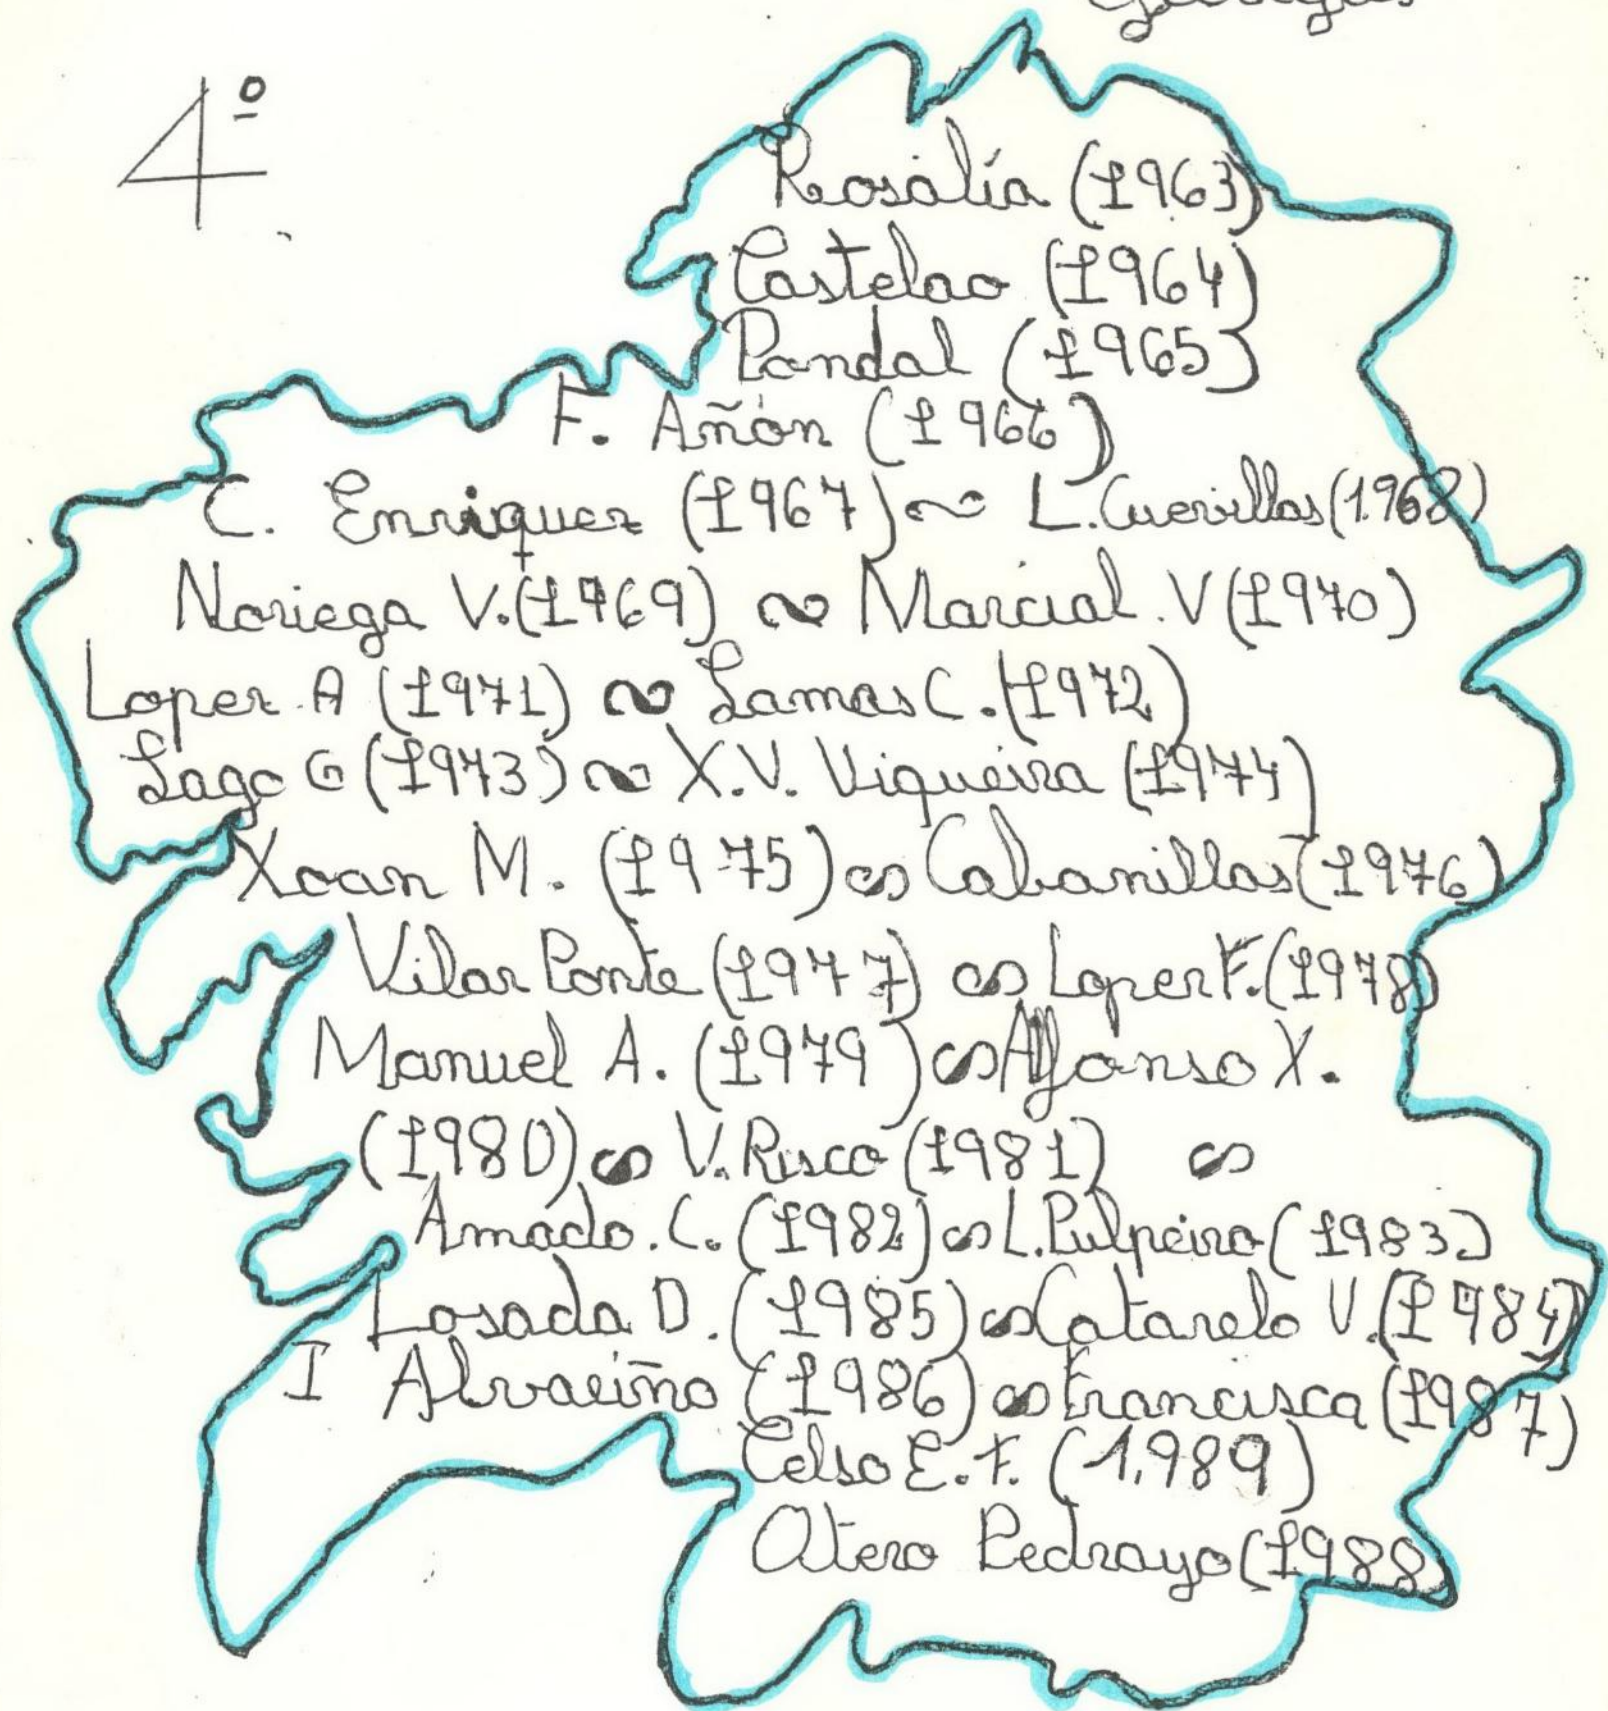 4º
Rosalía (1963)
Castelao (1964)
Pondal (1965)
F. Añón (1966)
C. Enriquez (1967) ~ L. Cuevillas (1.968)
Noriega V. (1969) ~ Marcial. V (1970)
Lopez. A (1971) ~ Lamas C. (1972)
Lago G (1973) ~ X.V. Viqueira (1974)
Xoan M. (1975) ~ Cabanillas (1976)
Vilar Ponte (1977) ~ Lopez F. (1978)
Manuel A. (1979) ~ Alfonso X.
(1980) ~ V. Risco (1981) ~
Amado. C. (1982) ~ L. Pulpeiro (1983)
Losada D. (1985) ~ Cotarelo V. (1984)
I Alvariño (1986) ~ Francisca (1987)
Celso E. F. (1.989)
Otero Pedrayo (1988)